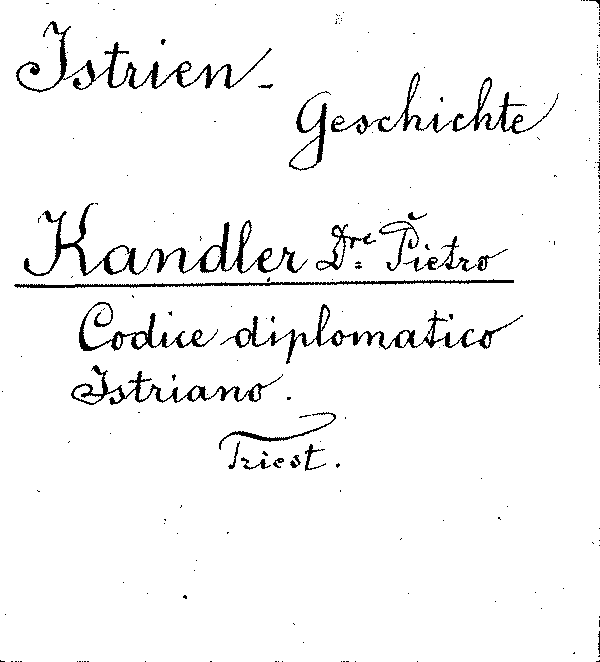 Istrien-
Geschichte
Kandler Dre. Pietro
Codice diplomatico
Istriano.
Triest.